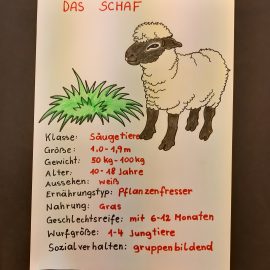 DAS SCHAF
Klasse: Säugetiere
Größe: 1.0-1,9m
Gewicht: 50kg-100kg
Alter: 10-18 Jahre
Aussehen: weiß
Ernährungstyp: Pflanzenfresser
Nahrung: Gras
Geschlechtsreife: mit 6-12 Monaten
Wurfgröße: 1-4 Jungtiere
Sozialverhalten: gruppenbildend